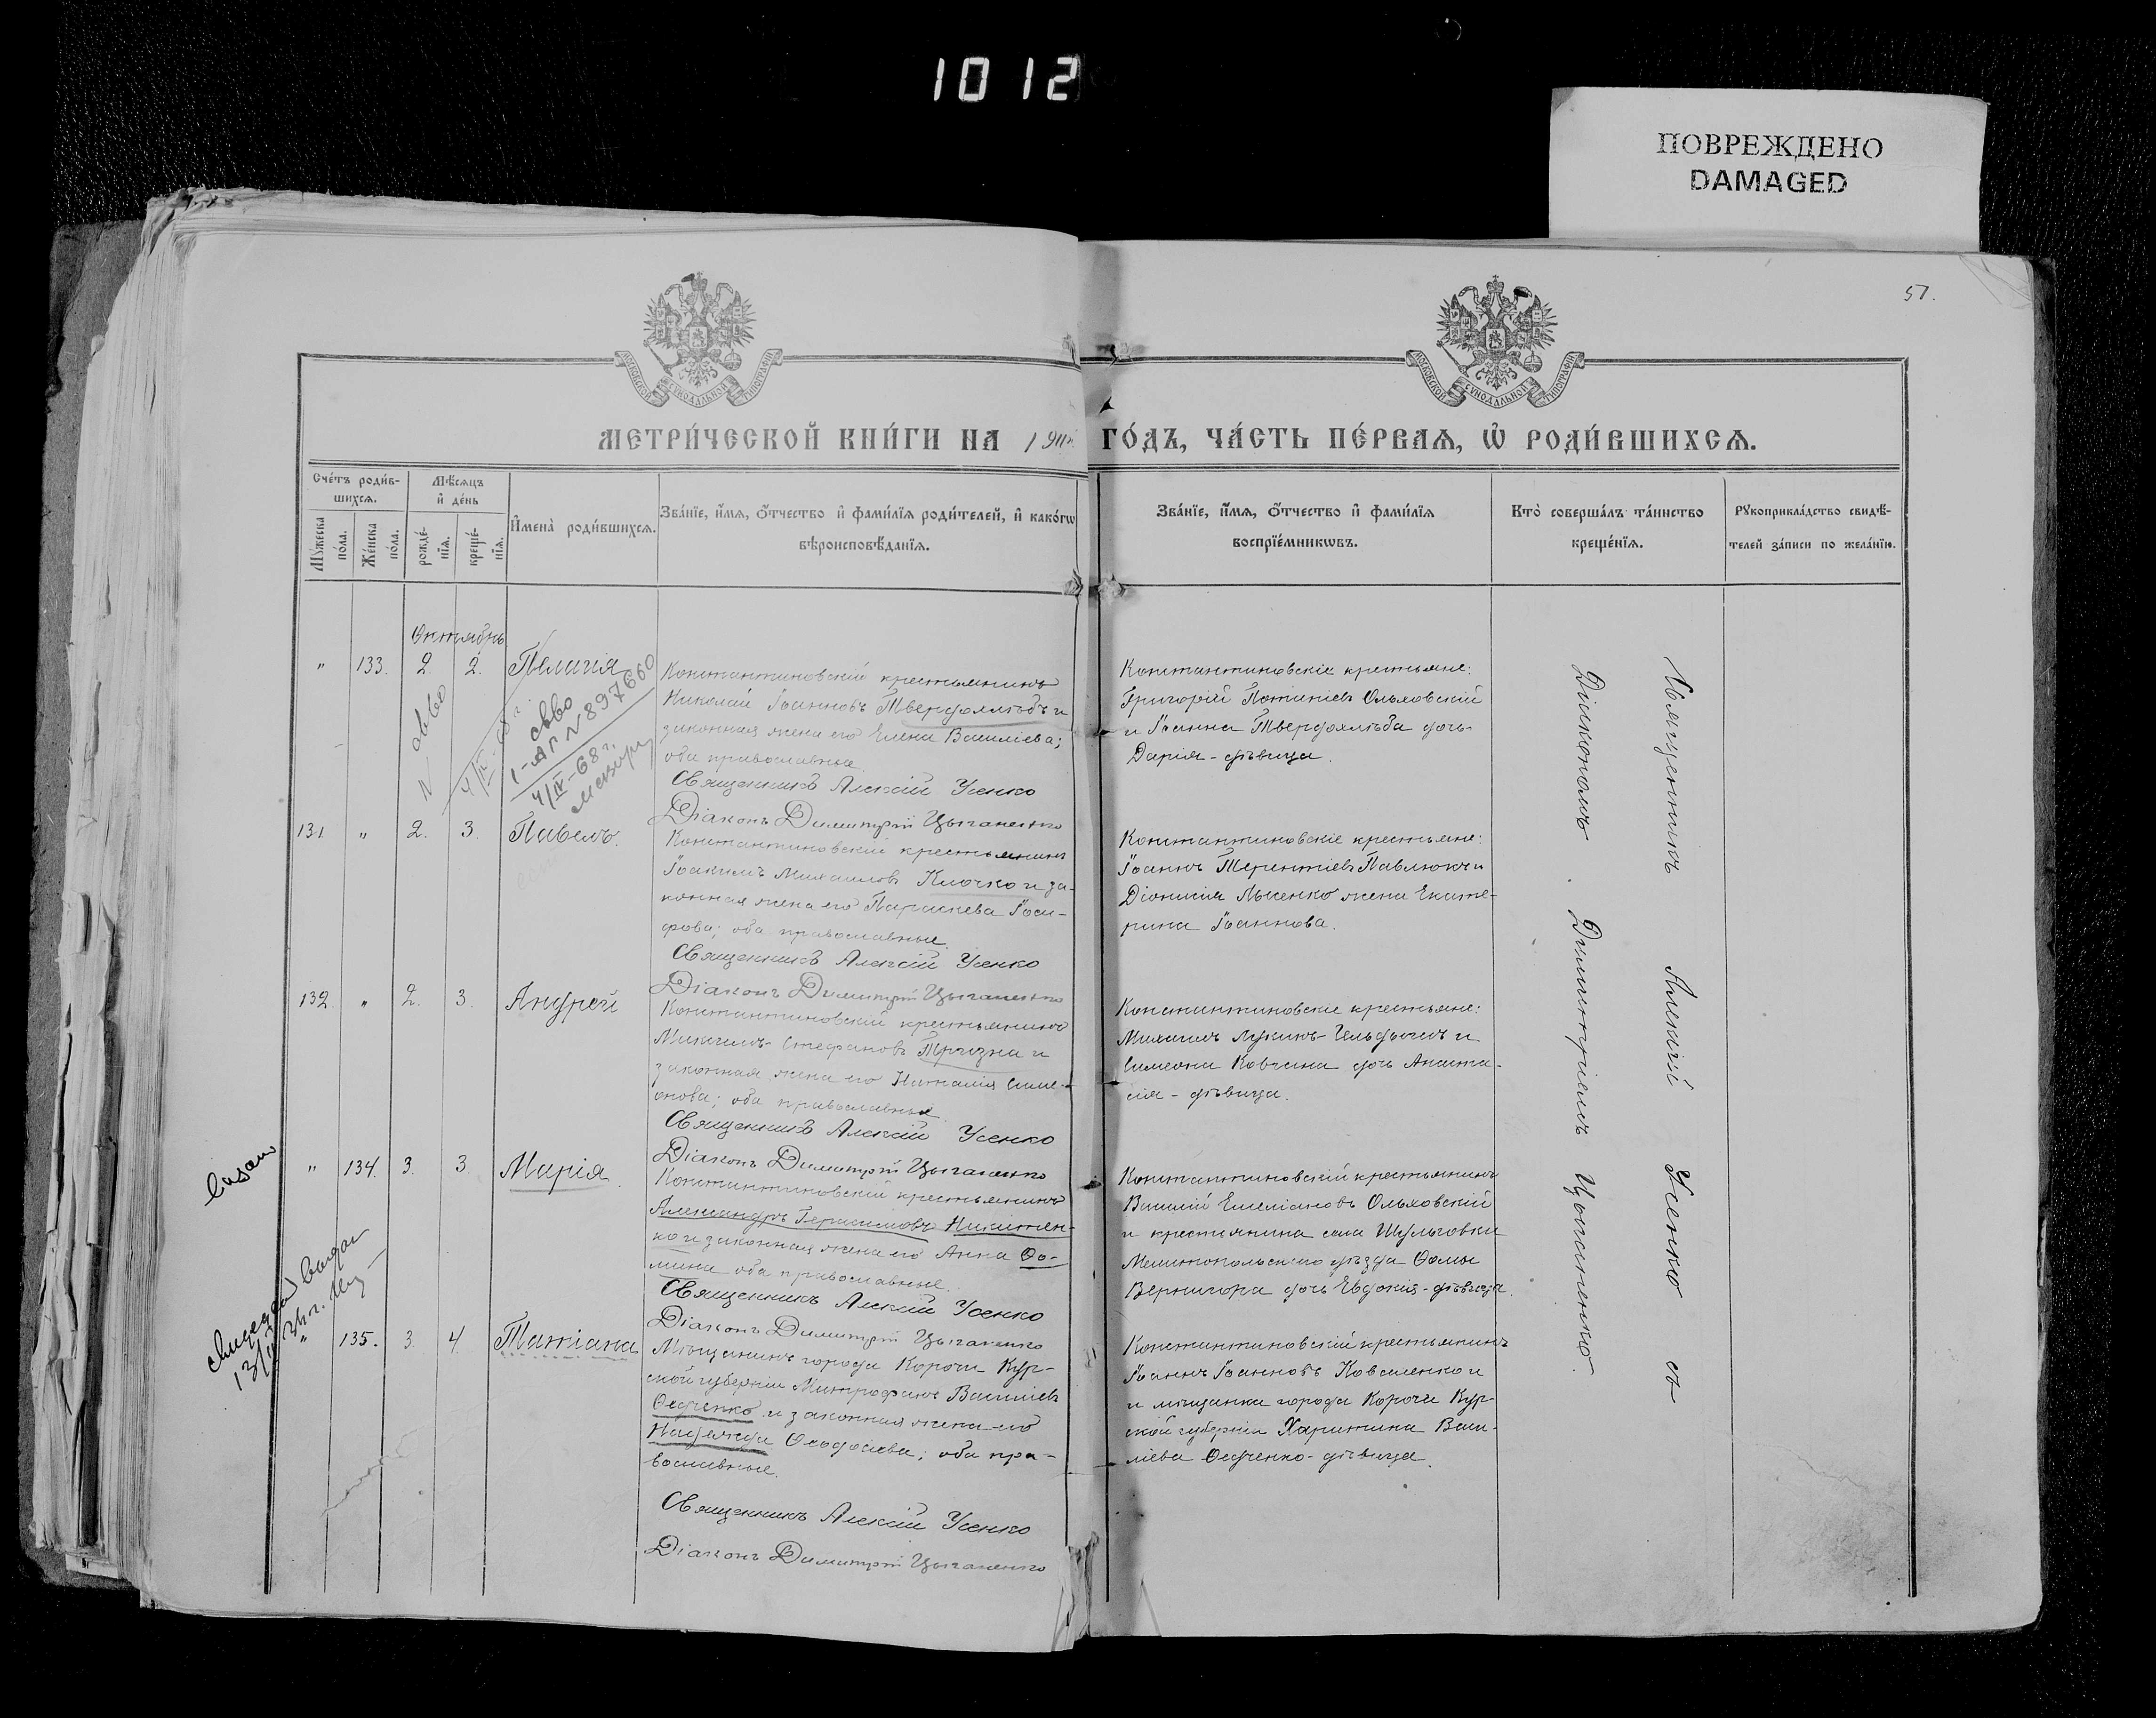 1012
ПОВРЕЖДЕНО
DAMAGED
57.
МОСКОВСКОЙ СУНОДАЛЬНОЙ ТИПОГРАФИИ
МОСКОВСКОЙ СУНОДАЛЬНОЙ ТИПОГРАФИИ
МЕТРИ́ЧЕСКОЙ КНИ́ГИ НА 1911й ГО́ДЪ, ЧА́СТЬ ПЕ́РВАѦ, Ѡ РОДИ́ВШИХСѦ.
Сче́тъ роди́в-
шихсѧ.
Мꙋжеска по́ла.
Же́нска по́ла.
Мѣ́сѧцъ
и҆ де́нь
рожде́-
нїѧ.
креще́-
нїѧ.
И҆мена̀ роди́вшихсѧ.
Зва́нїе, и҆́мѧ, ѻ҆́тчество и҆ фами́лїѧ роди́телей, и҆ како́гѡ
вѣроисповѣ́данїѧ.
Зва́нїе, и҆́мѧ, ѻ҆́тчество и҆ фами́лїѧ
воспрїе́мникѡвъ.
Кто̀ соверша́лъ та́инство
креще́нїѧ.
Рꙋкоприкла́дство свидѣ́-
телей за́писи по жела́нїю.
Октябрь
" 133. 2 2. Пелагія
Константиновскій крестьянинъ
Николай Іоанновъ Твердохлѣбъ и
законная жена его Елена Василіева;
оба православные.
Священникъ Алексій Усенко
Діаконъ Димитрій Цыганенко
Константиновскіе крестьяне:
Григорій Потапіевъ Ольховскій
и Іоанна Твердохлѣба дочь
Дарія - дѣвица.
с-во
I-АП №897660
4/IV-68 г.
131 " 2. 3. Павелъ.
Константиновскій крестьянинъ
Іоакимъ Михаиловъ Клочко и за-
конная жена его Параскева Іоси-
фова; оба православные.
Священникъ Алексій Усенко
Діаконъ Димитрій Цыганенко
Константиновскіе крестьяне:
Іоаннъ Терентіевъ Павлюкъ и
Діонисія Лысенко жена Екате-
рина Іоаннова.
132 " 2. 3. Андрей
Константиновскій крестьянинъ
Михаилъ Стефановъ Тризна и
законная жена его Наталія Симе-
онова; оба православные
Священникъ Алексій Усенко
Діаконъ Димитрій Цыганенко
Константиновскіе крестьяне:
Михаилъ Лукинъ и
Симеона Ковчина дочь Анаста-
сія - дѣвица.
" 134. 3. 3. Марія.
Константиновскій крестьянинъ
Александръ Герасимовъ Никитен-
ко и законная жена его Анна Ѳо-
мина оба православные.
Священникъ Алексій Усенко
Діаконъ Димитрій Цыганенко
Константиновскій крестьянинъ
Василій Емеліановъ Ольховскій
и крестьянина села Шульговки
Мелитопольскаго уѣзда Ѳомы
Вернигора дочь Евдокія - дѣвица.
" 135. 3. 4. Татіана
Мѣщанинъ города Корочи Кур-
ской губерніи Митрофанъ Василіевъ
Ѳедченко и законная жена его
Надежда Ѳеодосіева; оба пра-
вославные.
Священникъ Алексій Усенко
Діаконъ Димитрій Цыганенко
Константиновскій крестьянинъ
Іоаннъ Іоанновъ Коваленко и
и мѣщанка города Корочи Кур-
ской губерніи Харитина Васи-
ліева Ѳедченко - дѣвица.
Священникъ Алексій Усенко съ
Діакономъ Димитріемъ Цыганенко.